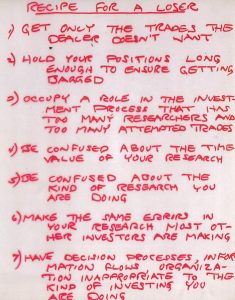 RECIPE FOR A LOSER
1) GET ONLY THE TRADES THE
DEALER DOESN'T WANT
2) HOLD YOUR POSITIONS LONG
ENOUGH TO ENSURE GETTING
BAGGED
3) OCCUPY ROLE IN THE INVEST-
MENT PROCESS THAT HAS
TOO MANY RESEARCHERS AND
TOO MANY ATTEMPTED TRADES
4) BE CONFUSED ABOUT THE TIME
VALUE OF YOUR RESEARCH
5) BE CONFUSED ABOUT THE
KIND OF RESEARCH YOU
ARE DOING
6) MAKE THE SAME ERRORS IN
YOUR RESEARCH MOST OT-
HER INVESTORS ARE MAKING
7) HAVE DECISION PROCESSES, INFOR
MATION FLOWS ORGANIZA-
TION INAPPROPRIATE TO THE
KIND OF INVESTING YOU
ARE DOING